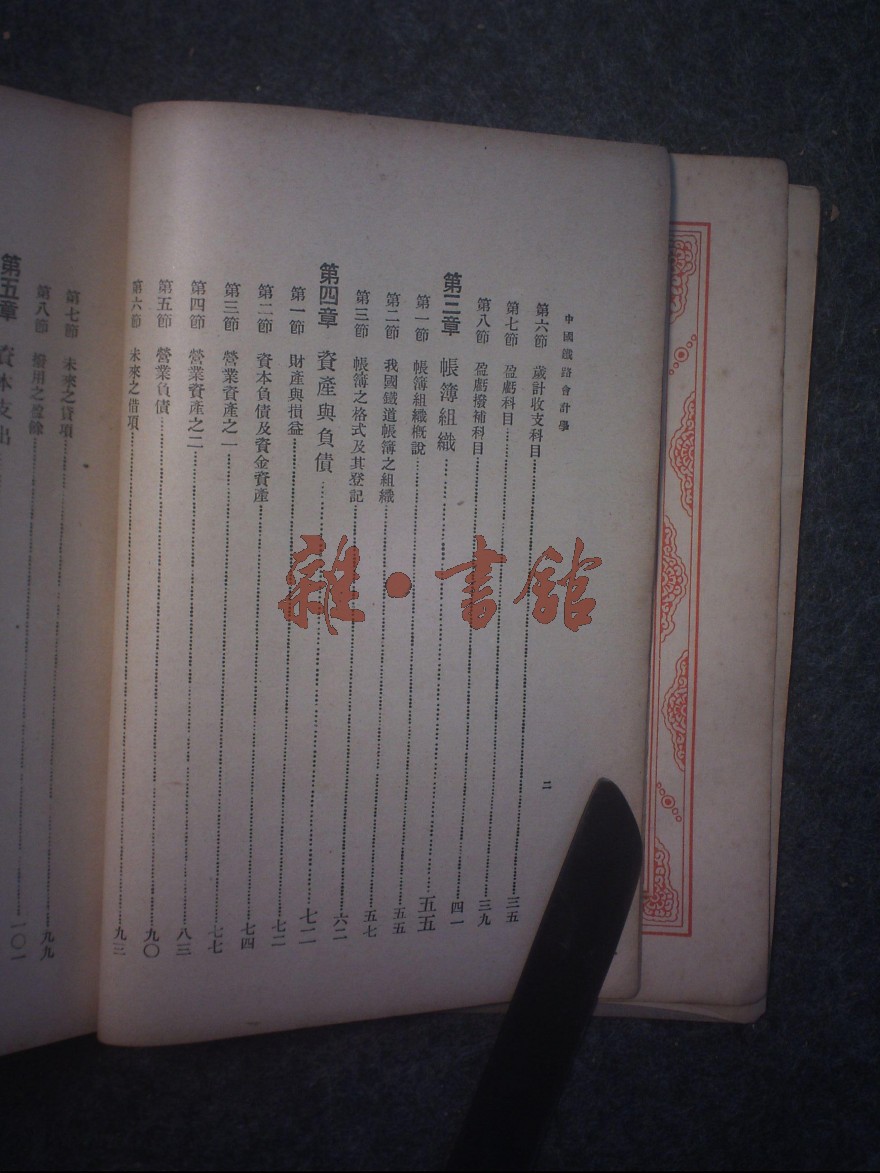 中國鐵路會計學
二
第六節 歲計收支科目……三五
第七節 盈虧科目……三九
第八節 盈虧撥補科目……四一
第三章 帳簿組織……五五
第一節 帳簿組織概說……五五
第二節 我國鐵道帳簿之組織……五七
第三節 帳簿之格式及其登記……六二
第四章 資產與負債……七二
第一節 財產與損益……七二
第二節 資本負債及資金資產……七四
第三節 營業資產之一……七七
第四節 營業資產之二……八三
第五節 營業負債……九〇
第六節 未來之借項……九三
第七節 未來之貸項……九九
第八節 撥用之盈餘……一〇一
第五章 資本支出
雜·書館